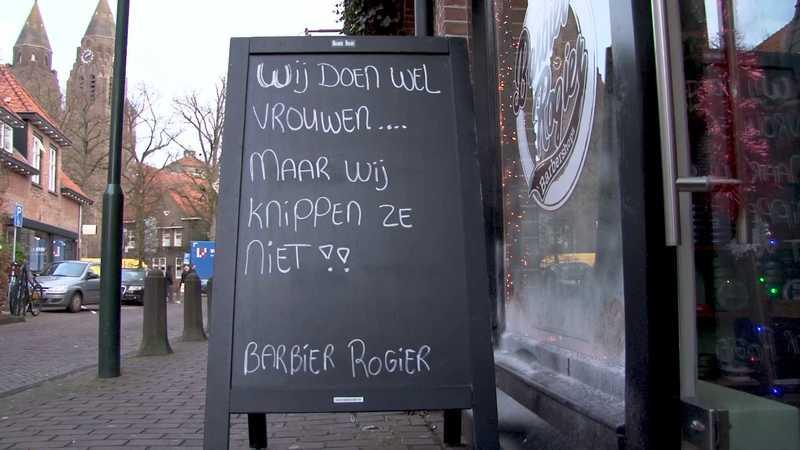 Wij DOEN WEL
VROUWEN....
MAAR Wij
KNiPPEN ZE
NiET !!
BARBiER ROGiER
Rogier
Barbershop
P